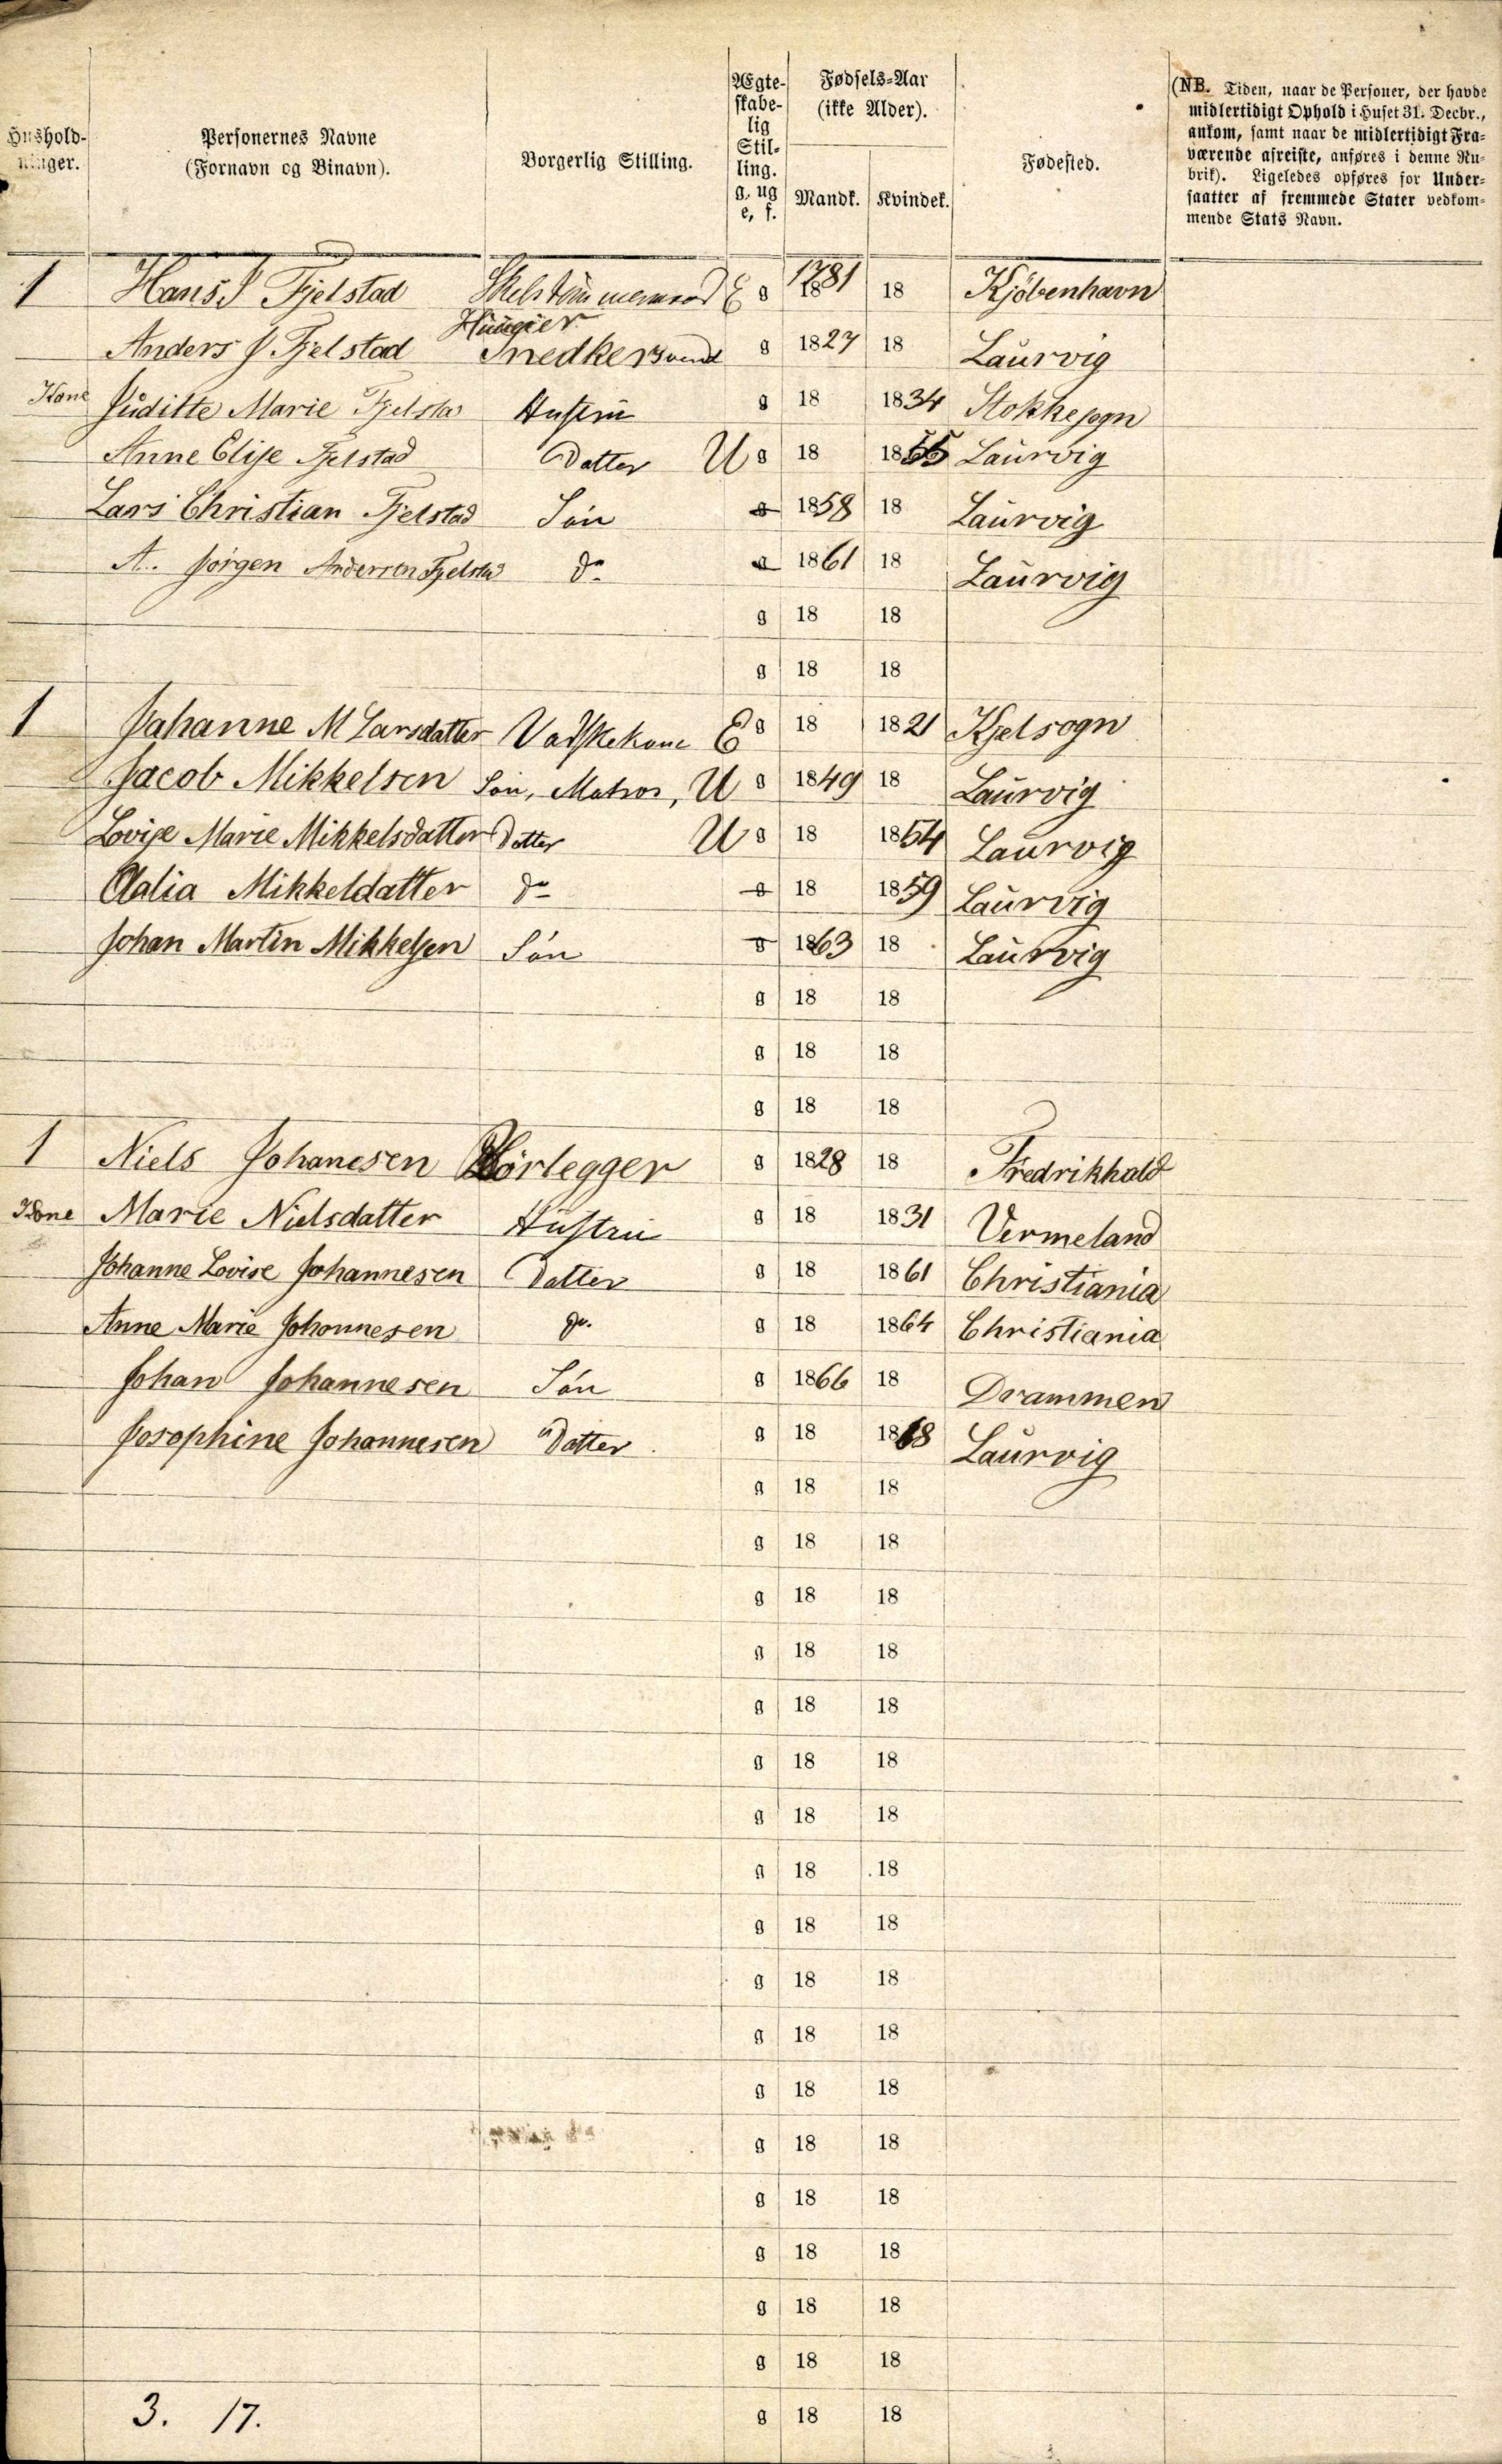 Hushold-
ninger.
Personernes Navne
(Fornavn og Binavn).
Borgerlig Stilling.
Ægte-
skabe-
lig
Stil-
ling.
g, ug
e, f.
Fødsels-Aar
(ikke Alder).
Mandk. Kvindek.
Fødested.
(NB. Tiden, naar de Personer, der havde
midlertidigt Ophold i Huset 31. Decbr.,
ankom, samt naar de midlertidigt Fra-
værende afreiste, anføres i denne Ru-
brik). Ligeledes opføres for Under-
saatter af fremmede Stater vedkom-
mende Stats Navn.
1 Hans J Fjelstad E g 1781 18 Kjöbenhavn
Anders J. Fjelstad Snedkersvend g 1827 18 Laurvig
Kone Juditte Marie Fjelstad Hustru g 18 1834 Stokkesogn
Anne Elise Fjelstad Datter U g 18 1855 Laurvig
Lars Christian Fjelstad Sön g 1858 18 Laurvig
A. Jörgen Andersen Fjelstad do g 1861 18 Laurvig
g 18 18
g 18 18
1 Johanne M Larsdatter Vadskekone E g 18 1821 Kjelsogn
Jacob Mikkelsen Sön, Matros, U g 1849 18 Laurvig
Lovise Marie Mikkelsdatter Datter U g 18 1854 Laurvig
Alalia Mikkeldatter do g 18 1859 Laurvig
Johan Martin Mikkelsen Sön g 1863 18 Laurvig
g 18 18
g 18 18
g 18 18
1 Niels Johanesen Rörlegger g 1828 18 Fredrikhald
Kone Marie Nielsdatter Hustru g 18 1831 Vermeland
Johanne Lovise Johannesen Datter g 18 1861 Christiania
Anne Marie Johannesen do. g 18 1864 Christiania
Johan Johannesen Sön g 1866 18 Drammen
Josophine Johannesen Datter g 18 1868 Laurvig
g 18 18
g 18 18
g 18 18
g 18 18
g 18 18
g 18 18
g 18 18
g 18 18
g 18 18
g 18 18
g 18 18
g 18 18
g 18 18
g 18 18
g 18 18
g 18 18
g 18 18
3. 17. g 18 18